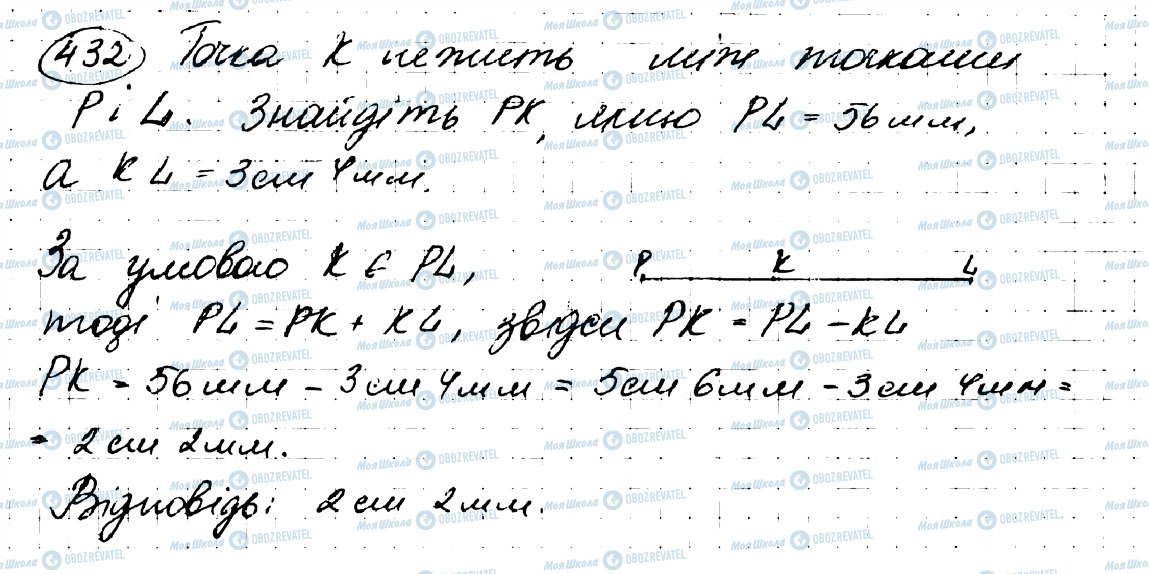 432 Точка K лежить між точками
P і L. Знайдіть PK, якщо PL = 56 мм,
а KL = 3 см 4 мм.
За умовою K ∈ PL,
P K L
тоді PL = PK + KL, звідси PK = PL - KL
PK = 56 мм - 3 см 4 мм = 5 см 6 мм - 3 см 4 мм =
= 2 см 2 мм.
Відповідь: 2 см 2 мм.
Моя Школа OBOZREVATEL